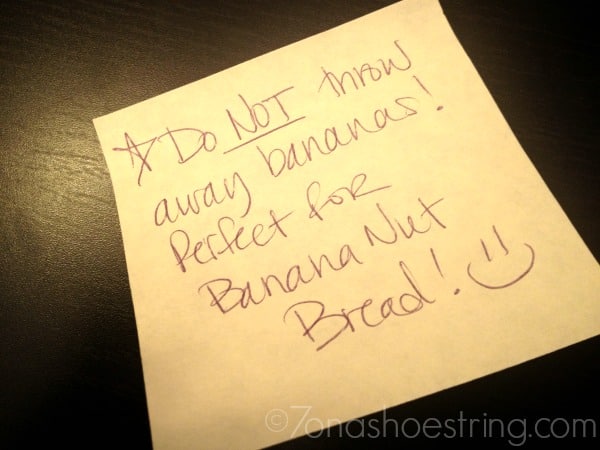 ☆ Do NOT throw
away bananas!
Perfect for
Banana Nut
Bread! :)
©7onashoestring.com